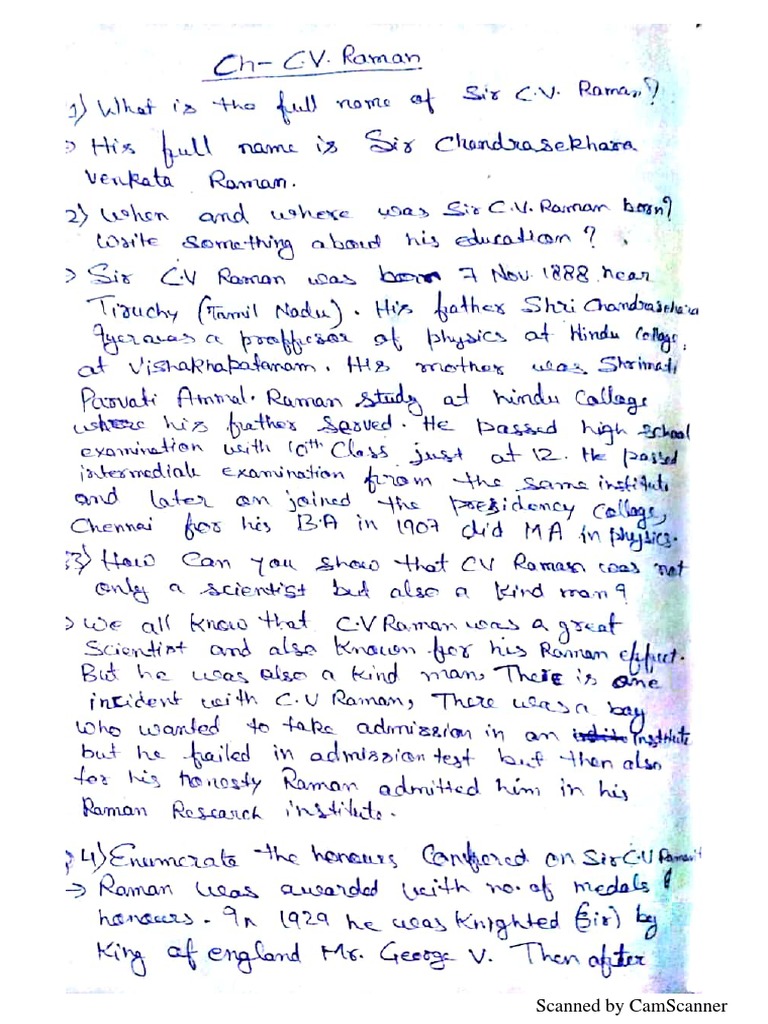 Ch- C.V. Raman
1) What is the full name of Sir C.V. Raman?
> His full name is Sir Chandrasekhara
Venkata Raman.
2) When and where was Sir C.V. Raman born?
Write something about his education?
> Sir C.V Raman was born 7 Nov. 1888 near
Tiruchy (Tamil Nadu). His father Shri Chandrasehara
Iyer was a proffesor of physics at Hindu College,
at Vishakhapatanam. His mother was Shrimati
Parvati Ammal. Raman study at hindu College
where his father served. He passed high school
examination with 10th Class just at 12. He passed
intermediate examination from the same institute
and later on joined the presidency College,
Chennai for his B.A in 1907 did MA in physics.
3) How can you show that CV Raman was not
only a scientist but also a kind man?
> We all know that C.V Raman was a great
Scientist and also known for his Raman effect.
But he was also a kind man, There is one
incident with C.V Raman, There was a boy
who wanted to take admission in an Institute
but he failed in admission test but then also
for his honesty Raman admitted him in his
Raman Research institute.
4) Enumerate the honours Confered on Sir C.V Raman
→ Raman was awarded with no. of medals &
honours. In 1929 he was Knighted (Sir) by
King of england Mr. George V. Then after
Scanned by CamScanner